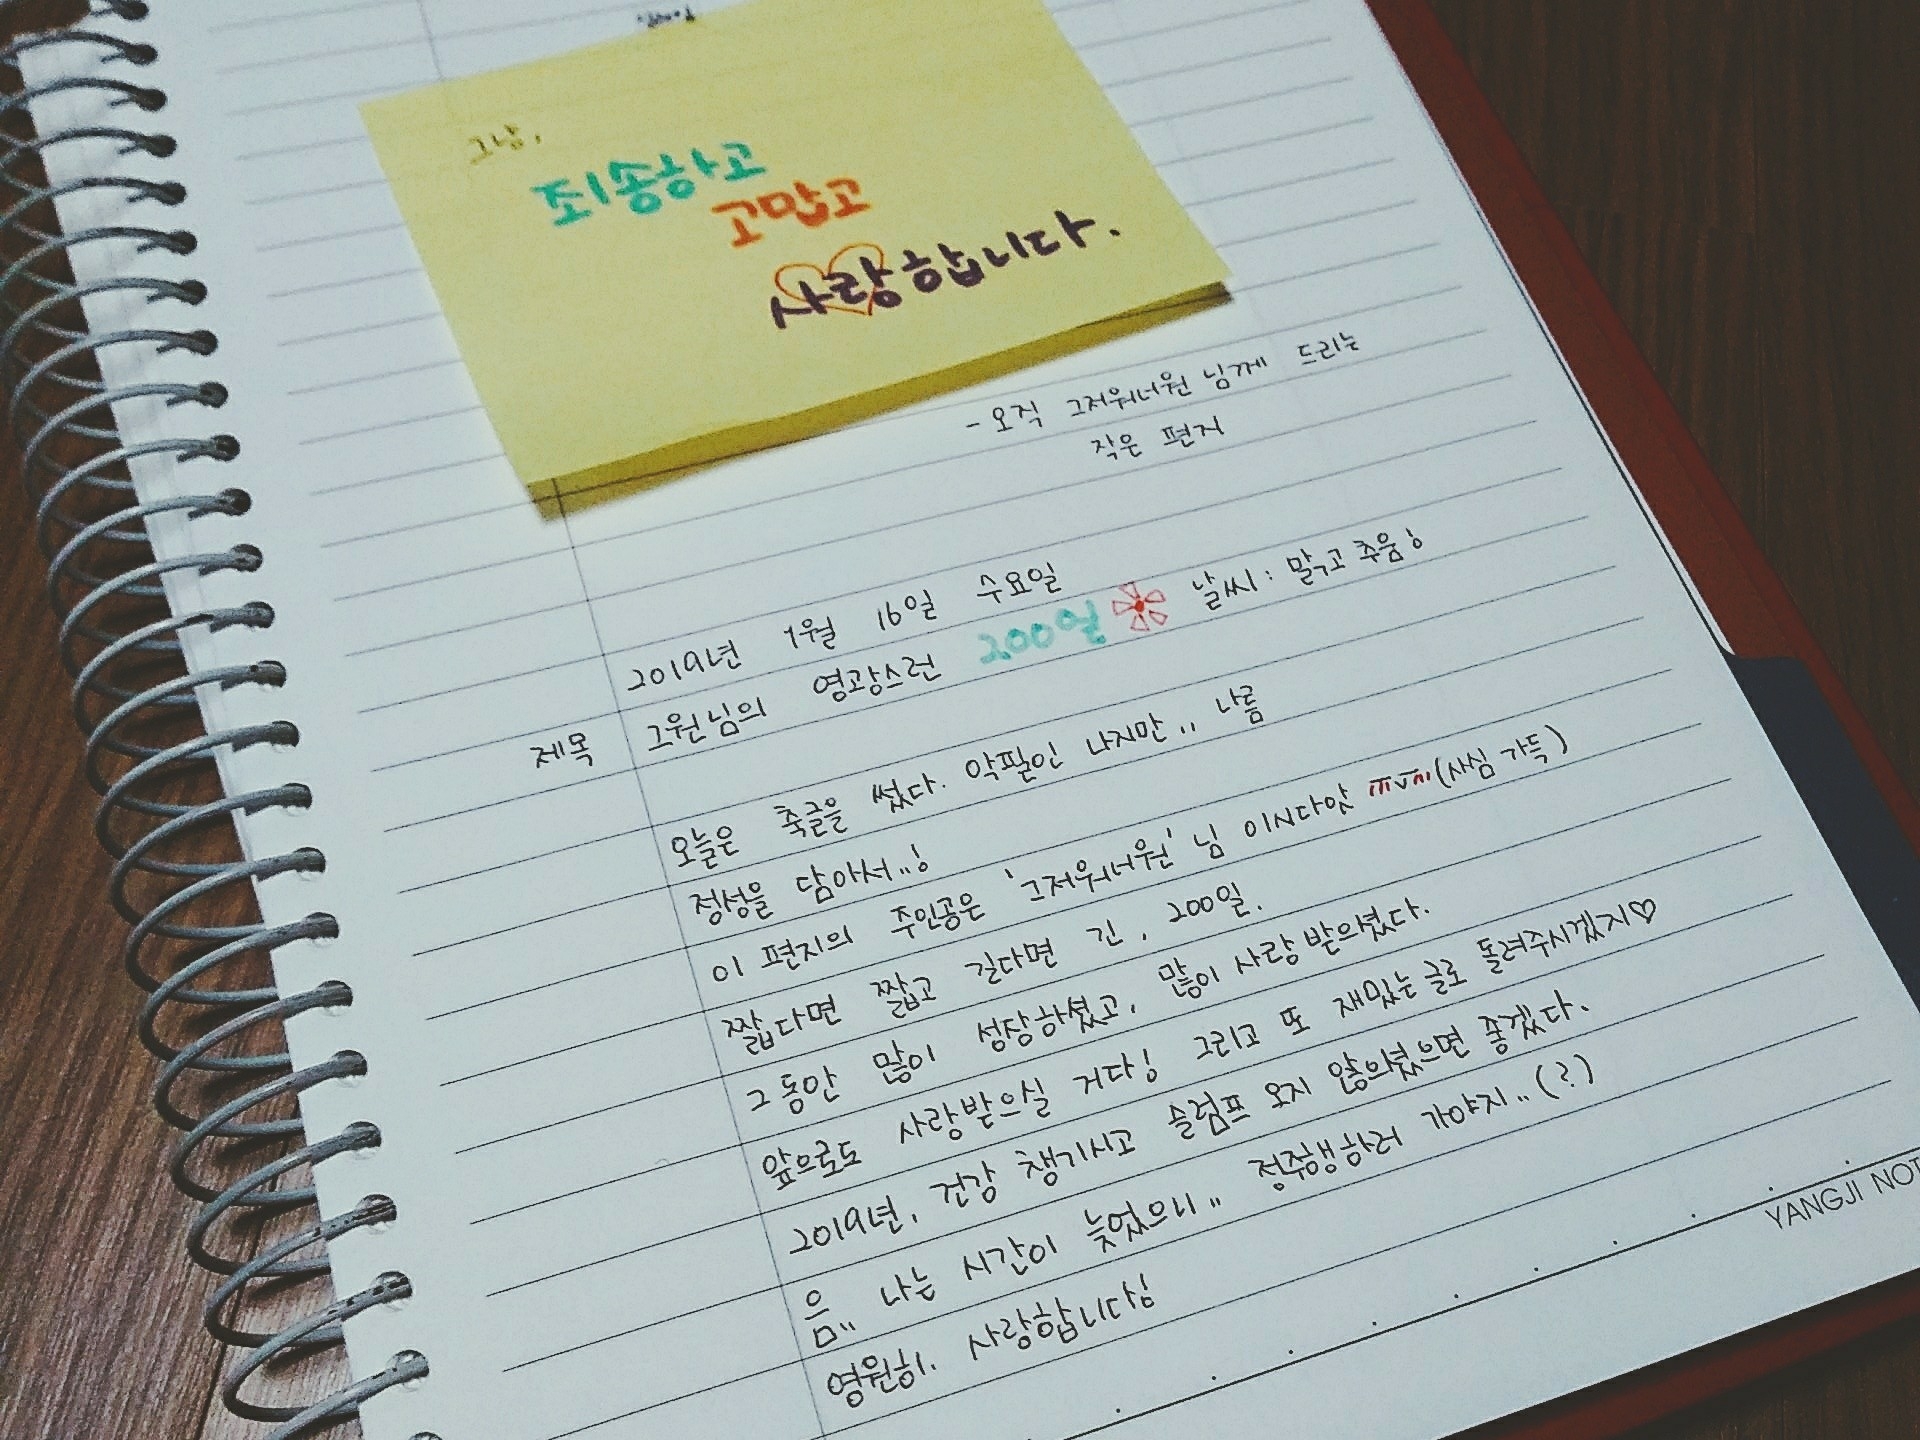 그냥,
죄송하고
고맙고
사랑합니다.
- 오직 그저워너원 님께 드리는
작은 편지
2019년 1월 16일 수요일
제목 그원님의 영광스런 200일 날씨 : 맑고 추움!
오늘은 축글을 썼다. 악필인 나지만.. 나름
정성을 담아서..!
이 편지의 주인공은 '그저워너원' 님 이시다앗 ㅠvㅠ (사심 가득)
짧다면 짧고 길다면 긴, 200일.
그동안 많이 성장하셨고, 많이 사랑받으셨다.
앞으로도 사랑받으실 거다! 그리고 또 재밌는 글로 돌려주시겠지♡
2019년, 건강 챙기시고 슬럼프 오지 않으셨으면 좋겠다.
음.. 나는 시간이 늦었으니.. 정주행하러 가야지.. (?)
영원히. 사랑합니다!
YANGJI NOT